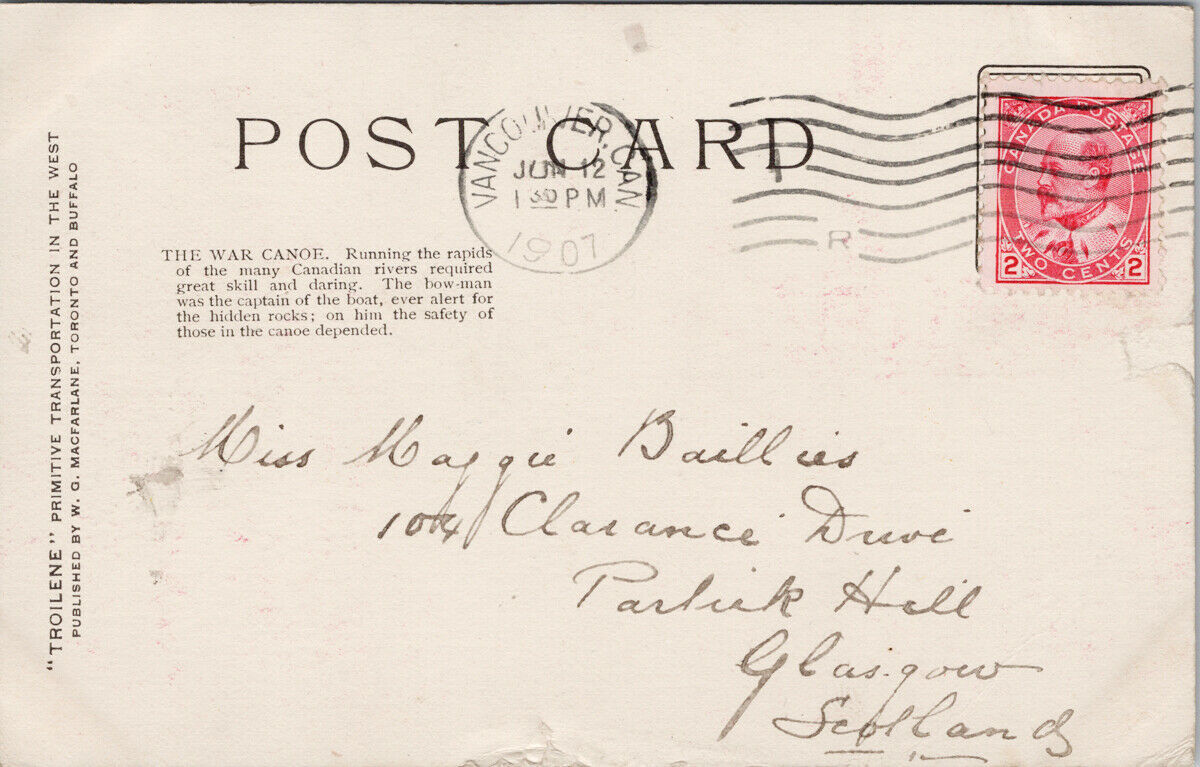 POST CARD
VANCOUVER, CAN
JUN 12
1 30 PM
1907
R
CANADA POSTAGE
2 TWO CENTS 2
"TROILENE" PRIMITIVE TRANSPORTATION IN THE WEST
PUBLISHED BY W. G. MACFARLANE, TORONTO AND BUFFALO
THE WAR CANOE. Running the rapids
of the many Canadian rivers required
great skill and daring. The bow-man
was the captain of the boat, ever alert for
the hidden rocks; on him the safety of
those in the canoe depended.
Miss Maggie Baillies
104 Clarance Drive
Partick Hill
Glasgow
Scotland